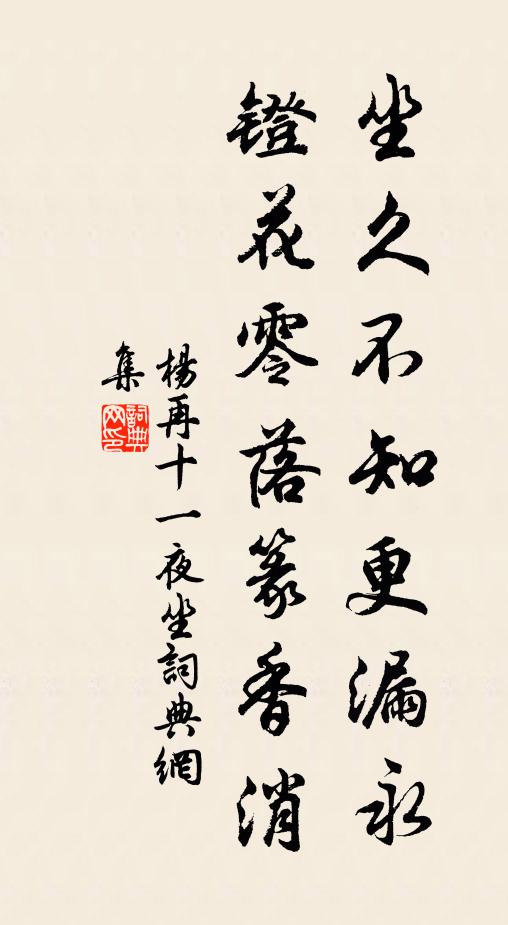 坐久不知更漏永
鐙花零落篆香消
楊再十一夜坐詞典網
集
詞典
网印